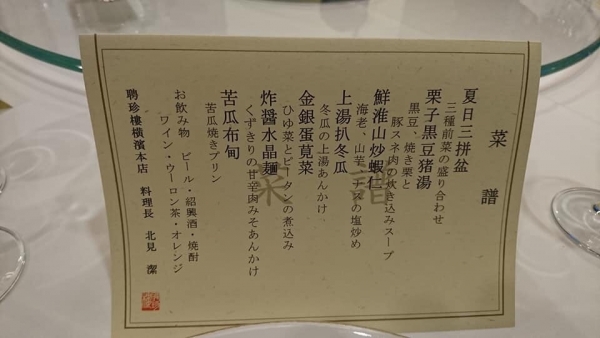 菜譜
夏日三拼盆
三種前菜の盛り合わせ
栗子黒豆猪湯
黒豆、焼き栗と
豚スネ肉の炊き込みスープ
鮮淮山炒蝦仁
海老、山芋、ナスの塩炒め
上湯扒冬瓜
冬瓜の上湯あんかけ
金銀蛋莧菜
ひゆ菜とピータンの煮込み
炸醬水晶麺
くずきりの甘辛肉みそあんかけ
苦瓜布甸
苦瓜焼きプリン
お飲み物 ビール・紹興酒・焼酎
ワイン・ウーロン茶・オレンジ
聘珍樓横濱本店 料理長 北見 潔
菜譜